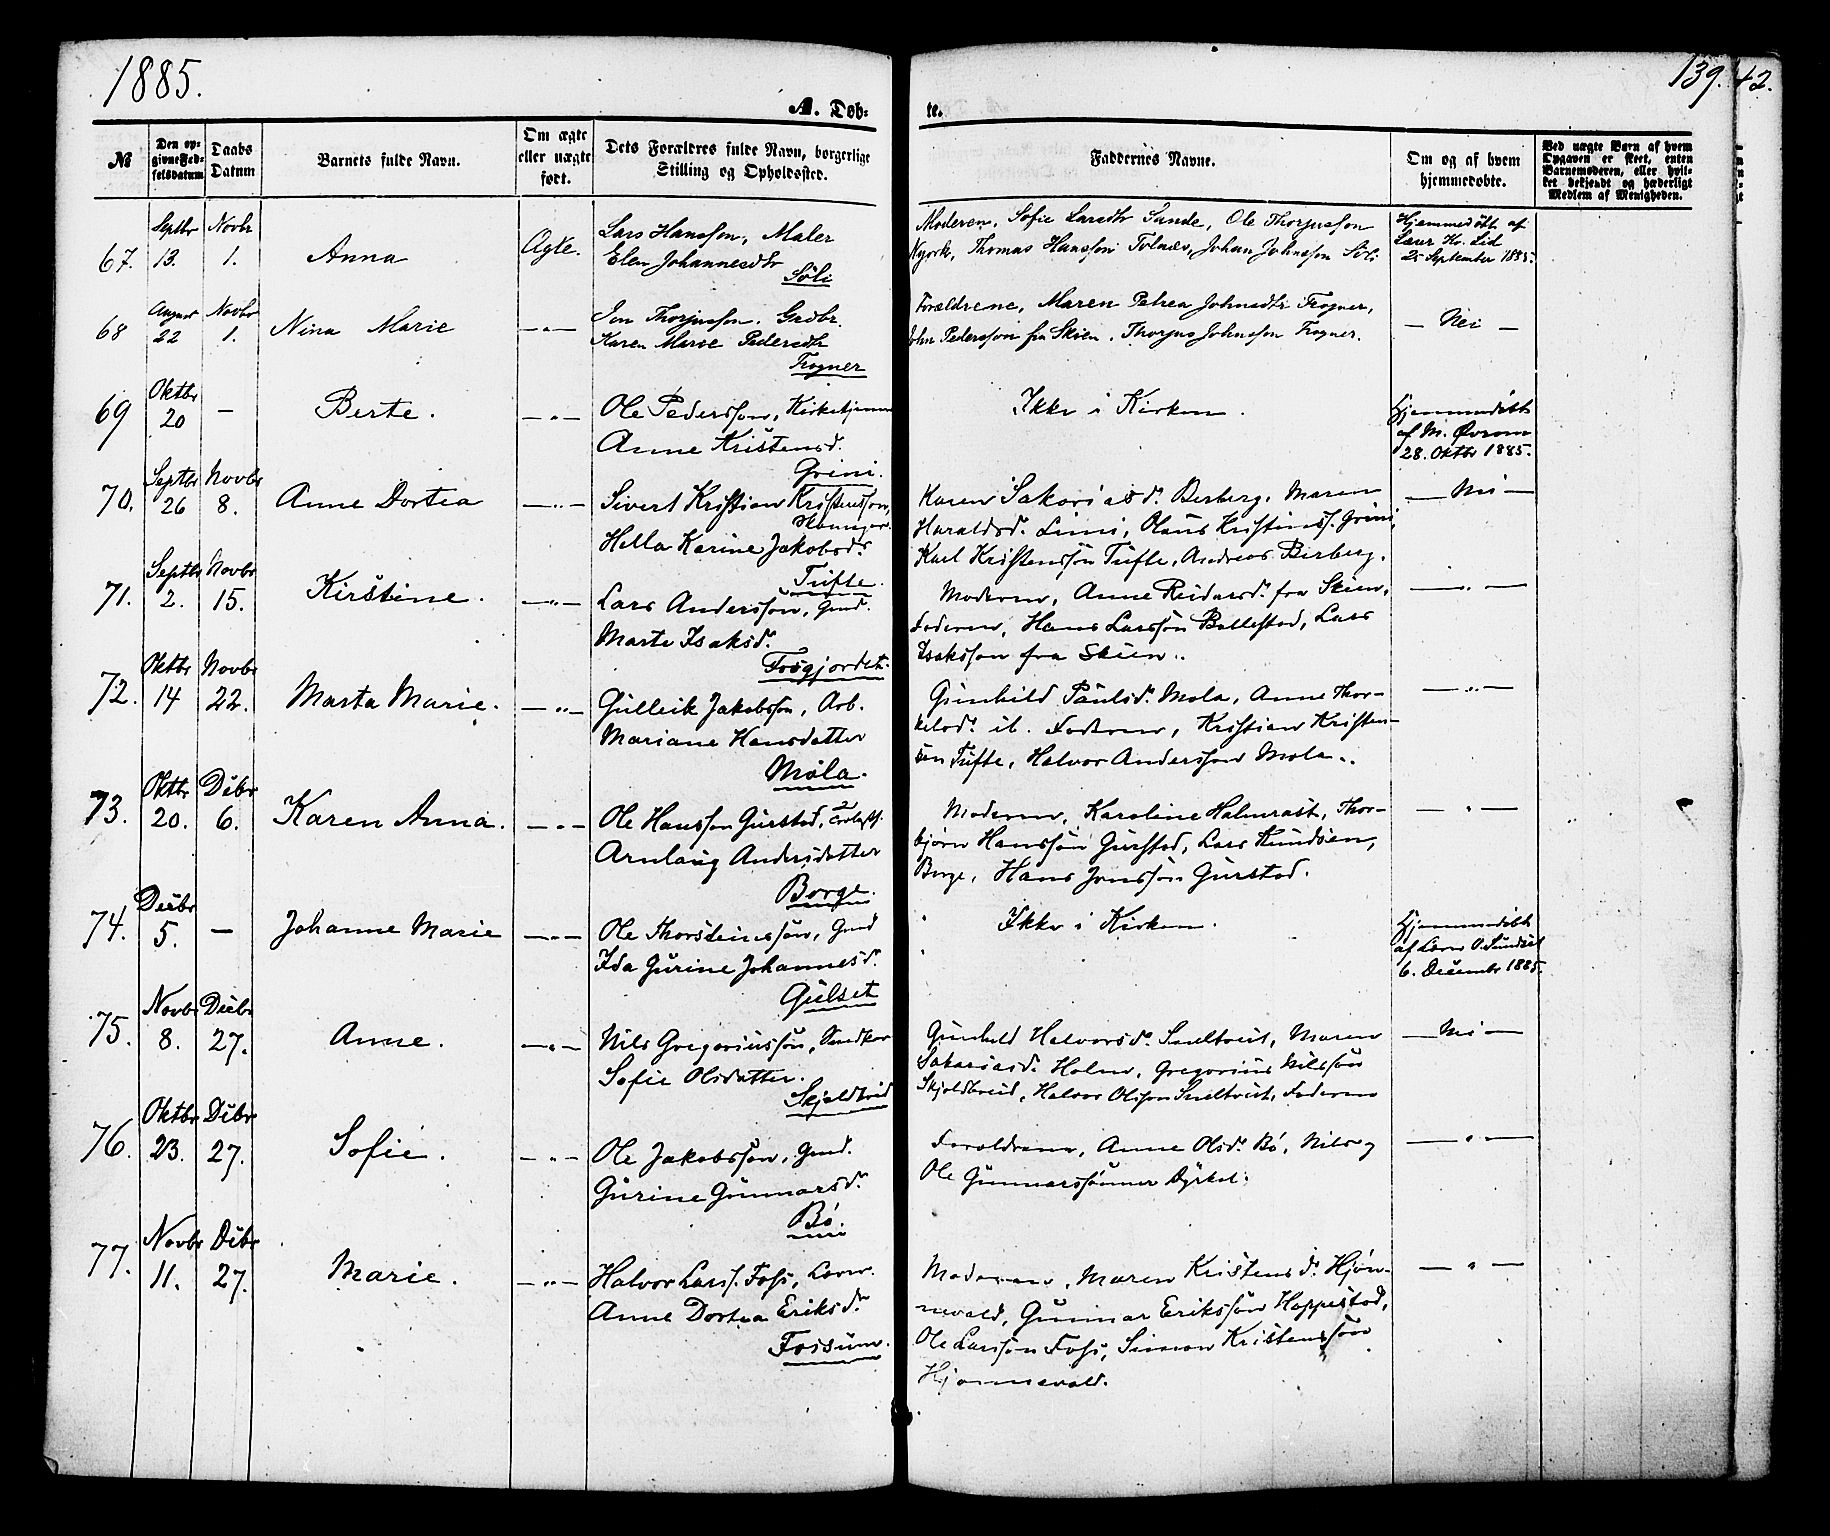 1885.
139.
42.
A. Døb-
te.
№
Den op-
givne Fød-
selsdatum
Daabs
Datum
Barnets fulde Navn.
Om ægte
eller uægte
født.
Dets Forældres fulde Navn, borgerlige
Stilling og Opholdssted.
Faddernes Navne.
Om og af hvem
hjemmedøbt.
Ved uægte Børn af hvem
Opgaven er skeet, enten
Barnemoderen, eller hvil-
ket bekjendt og hæderligt
Medlem af Menigheden.
67. Septbr 13. Novbr 1. Anna Ægte. Lars Hansson, Maler
Elen Johannesdtr
Søli
Moderen, Sofie Larsdtr Sande, Ole Thorjusson
Nyork, Thomas Hansson Tolnæs, Johan Johnsson Söli
Hjemmedöbt af
Lærer H. Lid
25 September 1885.
68 August 22 Novbr 1. Nina Marie —"— Jon Thorjusson. Grdbr.
Karen Marie Pedersdtr
Frogner
Forældrene, Maren Petrea Johnsdtr Frogner,
John Pedersson fra Skien, Thorjus Johnsson Frogner.
— Nei —
69 Oktbr 20 — Berte. —"— Ole Pedersson, Kirketjener
Anne Kristensd.
Grini.
Ikke i Kirken.
Hjemmedöbt
af M. Øvrum
28. Oktbr 1885.
70. Septbr 26 Novbr 8. Anne Dortea —"— Sivert Kristian Kristensson,
Hella Karine Jakobsdr
Tufte.
Karen Sakariasd. Berberg, Maren
Haraldsd. Limi, Olaus Kristenss. Grini,
Karl Kristenssön Tufte, Andreas Berberg.
— Nei —
71. Septbr 2. Novbr 15. Kirstine. —"— Lars Anderssön, Gmd.
Marte Isaksdr
Fosgjordet.
Moderen, Anne Reidarsd. fra Skien,
Faderen, Hans Larssön Ballestad, Lars
Isaksson fra Skien..
—"—
72. Oktbr 14 Novbr 22. Marta Marie. —"— Gulleik Jakobssön, Arb.
Mariane Hansdatter
Mæla.
Gunhild Paulsd. Mæla, Anne Thor-
kelsd. ib. Faderen, Kristian Kristen-
sen Tufte, Halvor Andersson Mæla..
—"—
73. Oktbr 20. Debr 6. Karen Anna. —"— Ole Hansson Gurstad,
Arnlaug Andersdatter
Borge.
Moderen, Karoline Halmrast, Thor-
björn Hanssön Gurstad, Lars Knudsen,
Borge, Hans Jonssön Gurstad.
—"—
74. Desbr 5. — Johanne Marie —"— Ole Thorsteinssön, Gmd
Ida Gurine Johannesd.
Gulset
Ikke i Kirken.
Hjemmedöbt
af Lærer O. Sundset
6. December 1885.
75. Novbr 8. Desbr 27. Anne. —"— Nils Gregoriussön,
Sofie Olsdatter.
Skjeldbreid
Gunhild Halvorsd. Sneltveit, Maren
Sakariasd. Holm, Gregorius Nilssön
Skjeldbreid, Halvor Olsson Sneltveit, Faderen
— Nei —
76. Oktbr 23. Debr 27. Sofie. —"— Ole Jakobsson, Gmd.
Gurine Gunnarsd.
Bö.
Forældrene, Anne Olsd. Bö, Nils og
Ole Gunnarssönner Dyrkol.
—"—
77. Novbr 11. Debr 27. Marie. —"— Halvor Larss. Foss,
Anne Dortea Eriksdr
Fossum.
Moderen, Maren Kristensd. Hjön-
nevald, Gunnar Erikssön Hoppestad,
Ole Larssön Foss, Simon Kristenssön
Hjonnevald.
—"—